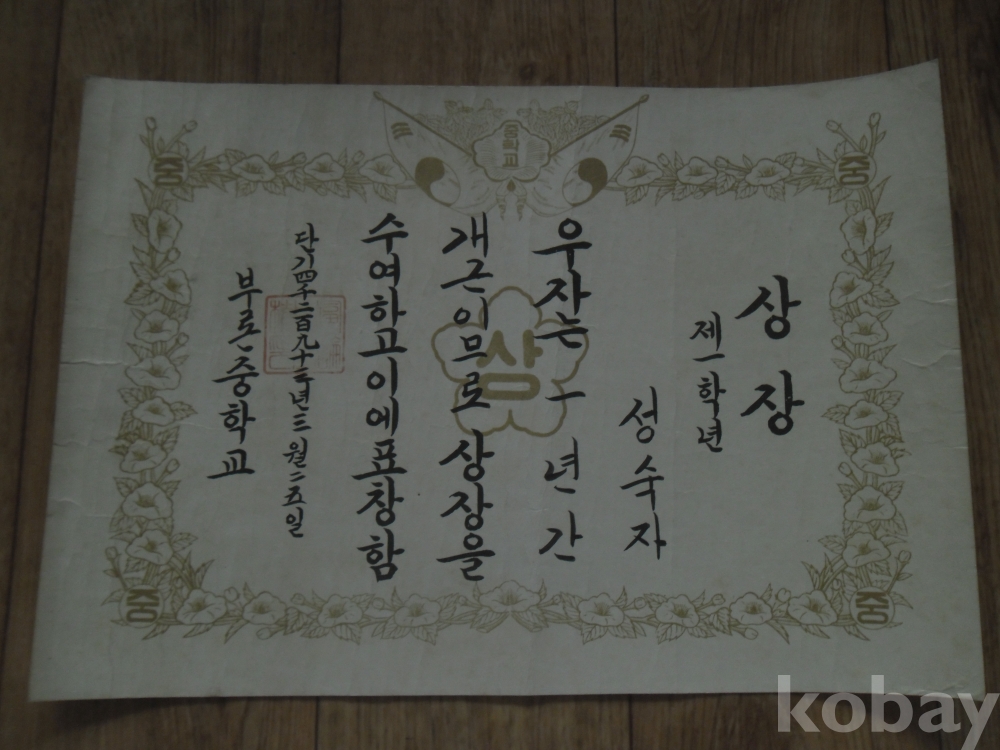 상장
제一학년
성숙자
우자는 一년간
개근이므로 상장을
수여하고이에표창함
단기四千二百九十三年三월二五일
부론중학교
중학교
상
중
중
중
중
kobay